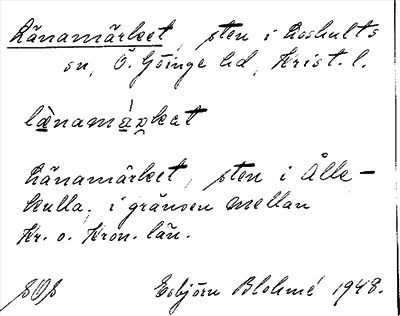 Länamärket, sten i Loshults
sn, Ö. Göinge hd, Krist. l.
länamärkat
Länamärket, sten i Ålle-
kulla, i gränsen mellan
Kr. o. Kron. län.
Esbjörn Blohmé 1948.